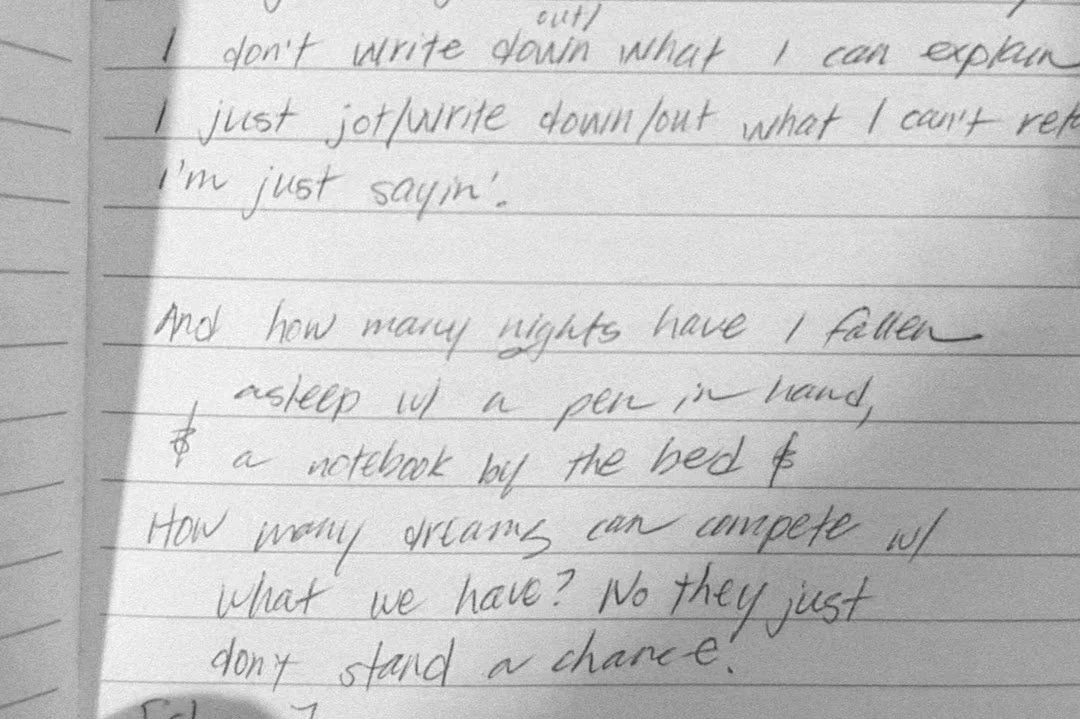 out/
I don't write down what I can explain
I just jot/write down/out what I can't
I'm just sayin'.
And how many nights have I fallen
asleep w/ a pen in hand,
& a notebook by the bed &
How many dreams can compete w/
what we have? No they just
don't stand a chance!